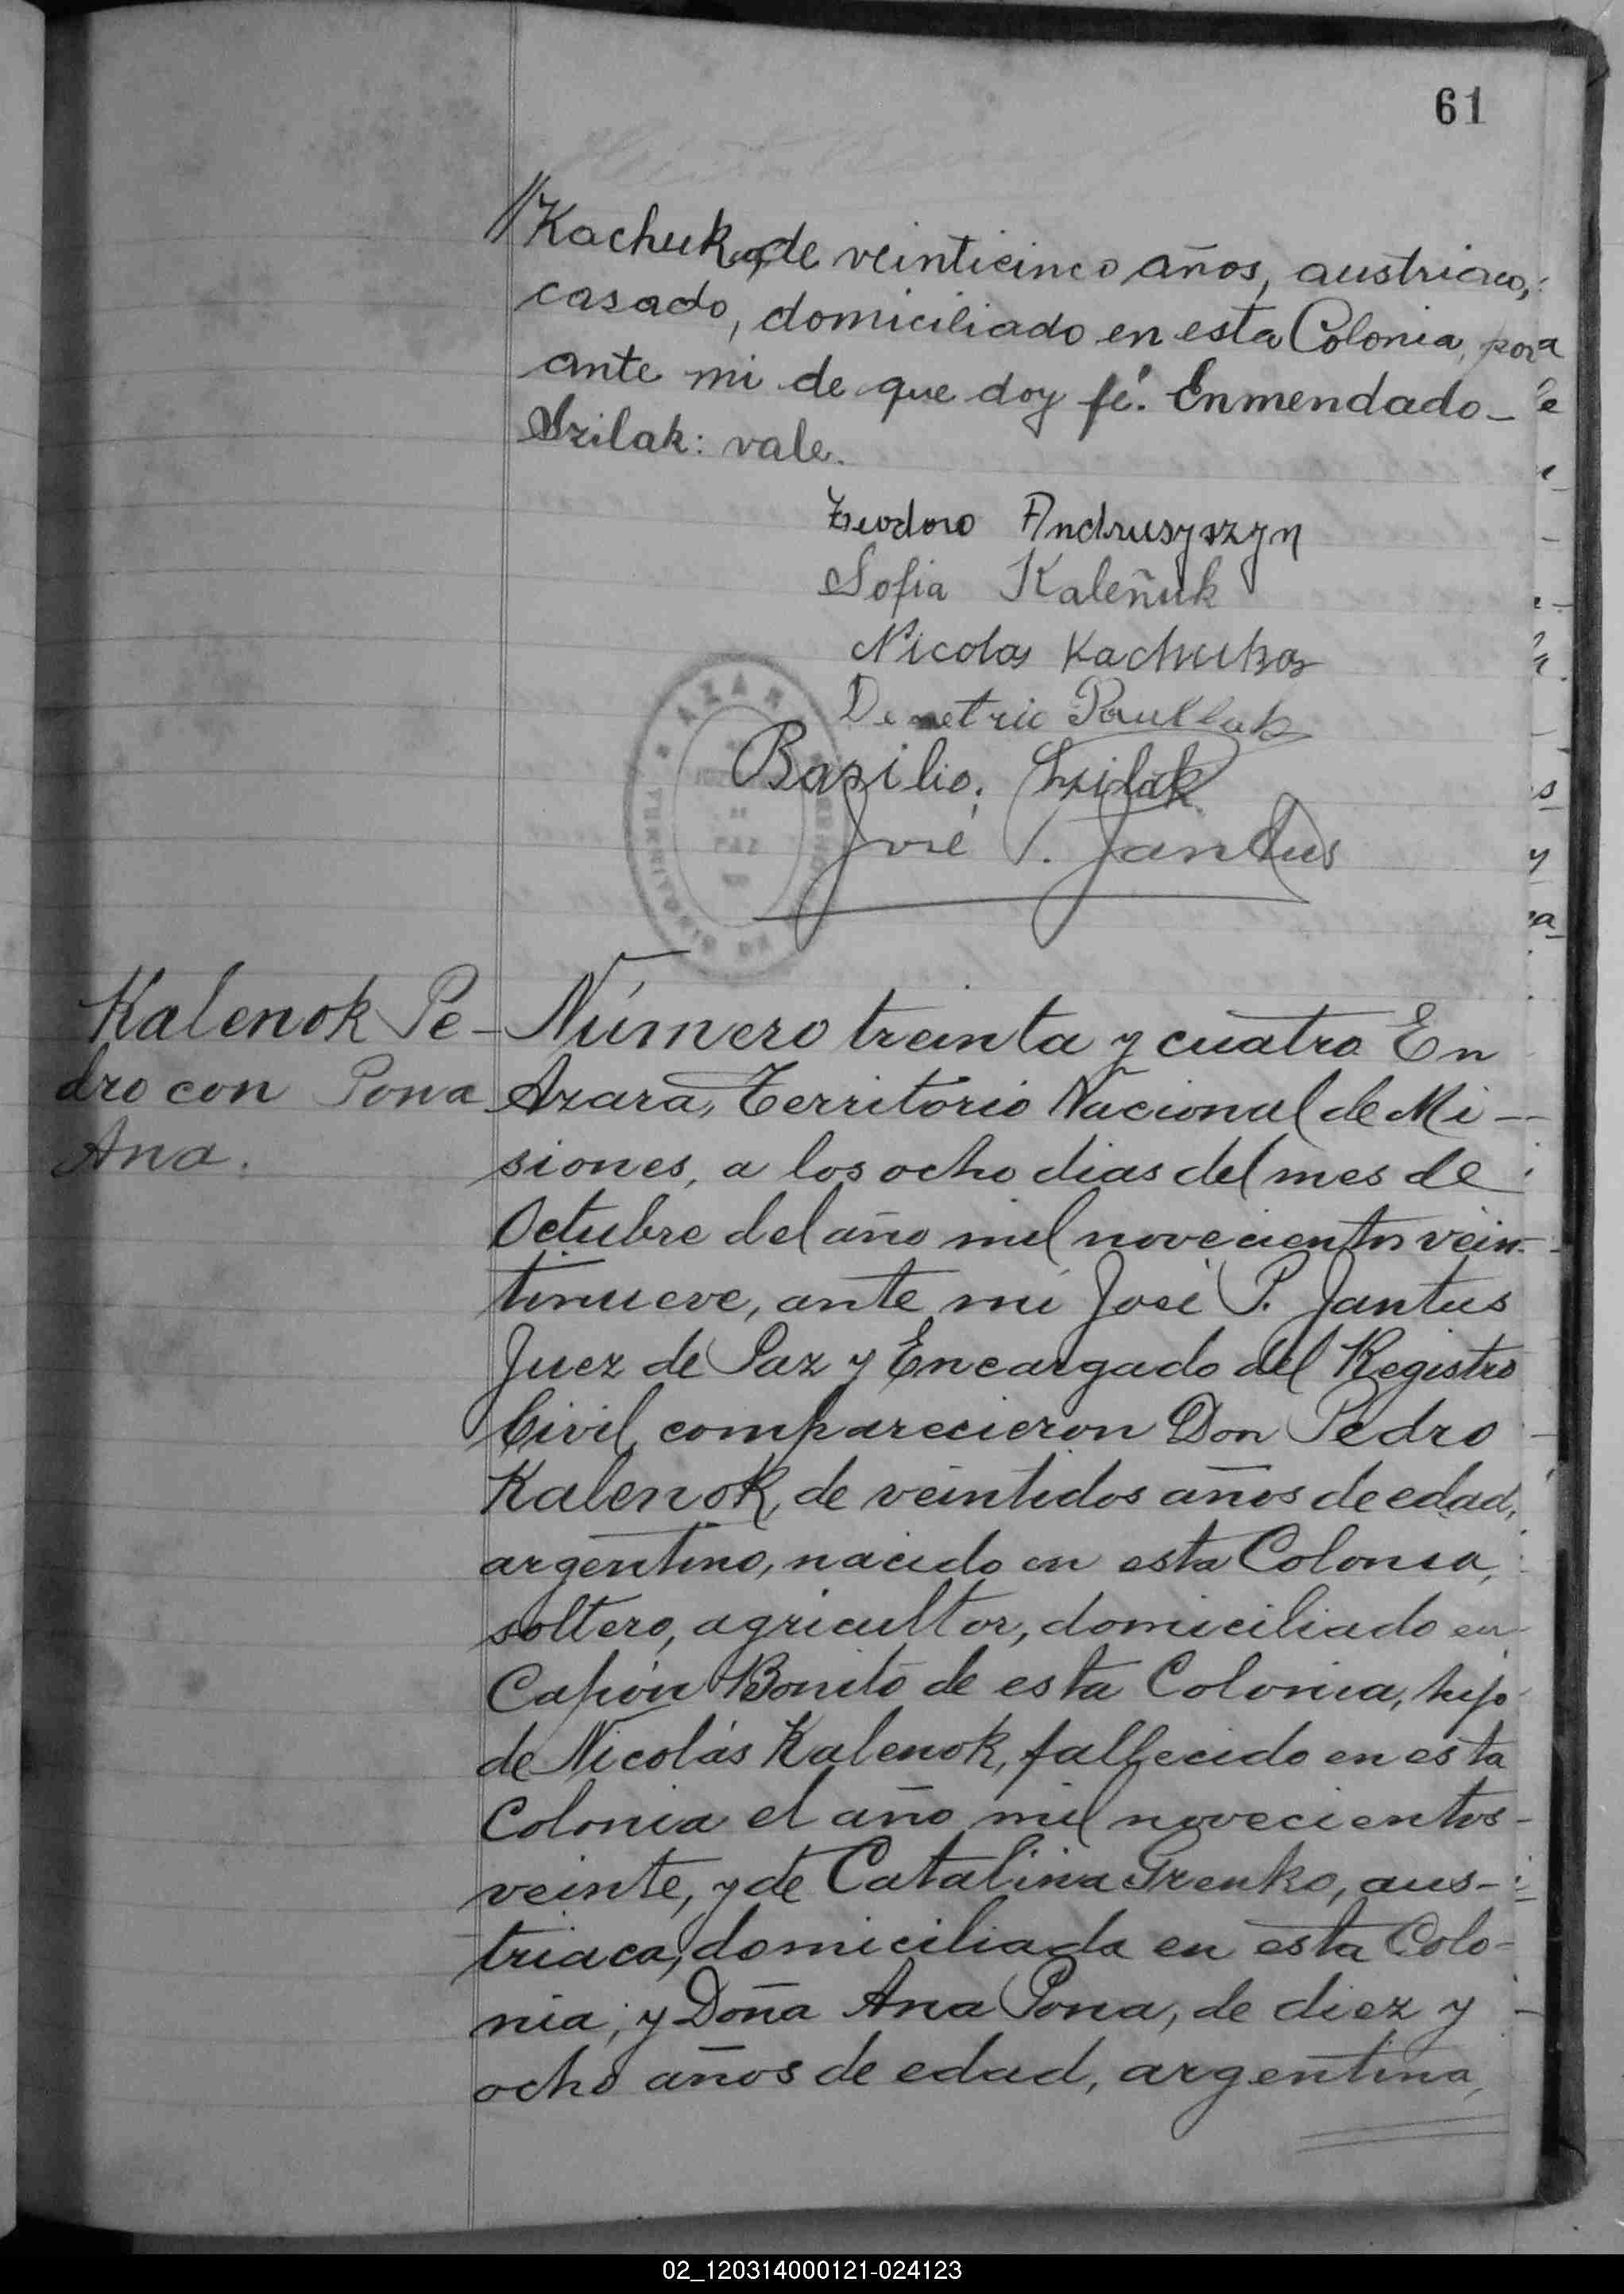 61
//Kachuka, de veinticinco años, austriaco,
casado, domiciliado en esta Colonia, por
ante mi de que doy fé. Enmendado_
Szilak: vale.
Teodoro Andrusyszyn
Sofia Kaleñuk
Nicolas Kachuka
Demetrio
Basilio Szilak
José P. Jantus
AZARA
Kalenok Pe-
dro con Pona
Ana.
Número treinta y cuatro En
Azara, Territorio Nacional de Mi-
siones, a los ocho dias del mes de
Octubre del año mil novecientos vein-
tinueve, ante mi José P. Jantus
Juez de Paz y Encargado del Registro
Civil, comparecieron Don Pedro
Kalenok, de veintidos años de edad,
argentino, nacido en esta Colonia,
soltero, agricultor, domiciliado en
Capón Bonito de esta Colonia, hijo
de Nicolás Kalenok, fallecido en esta
Colonia el año mil novecientos
veinte, y de Catalina Grenko, aus-
triaca, domiciliada en esta Colo-
nia; y Doña Ana Pona, de diez y
ocho años de edad, argentina,
02_120314000121-024123